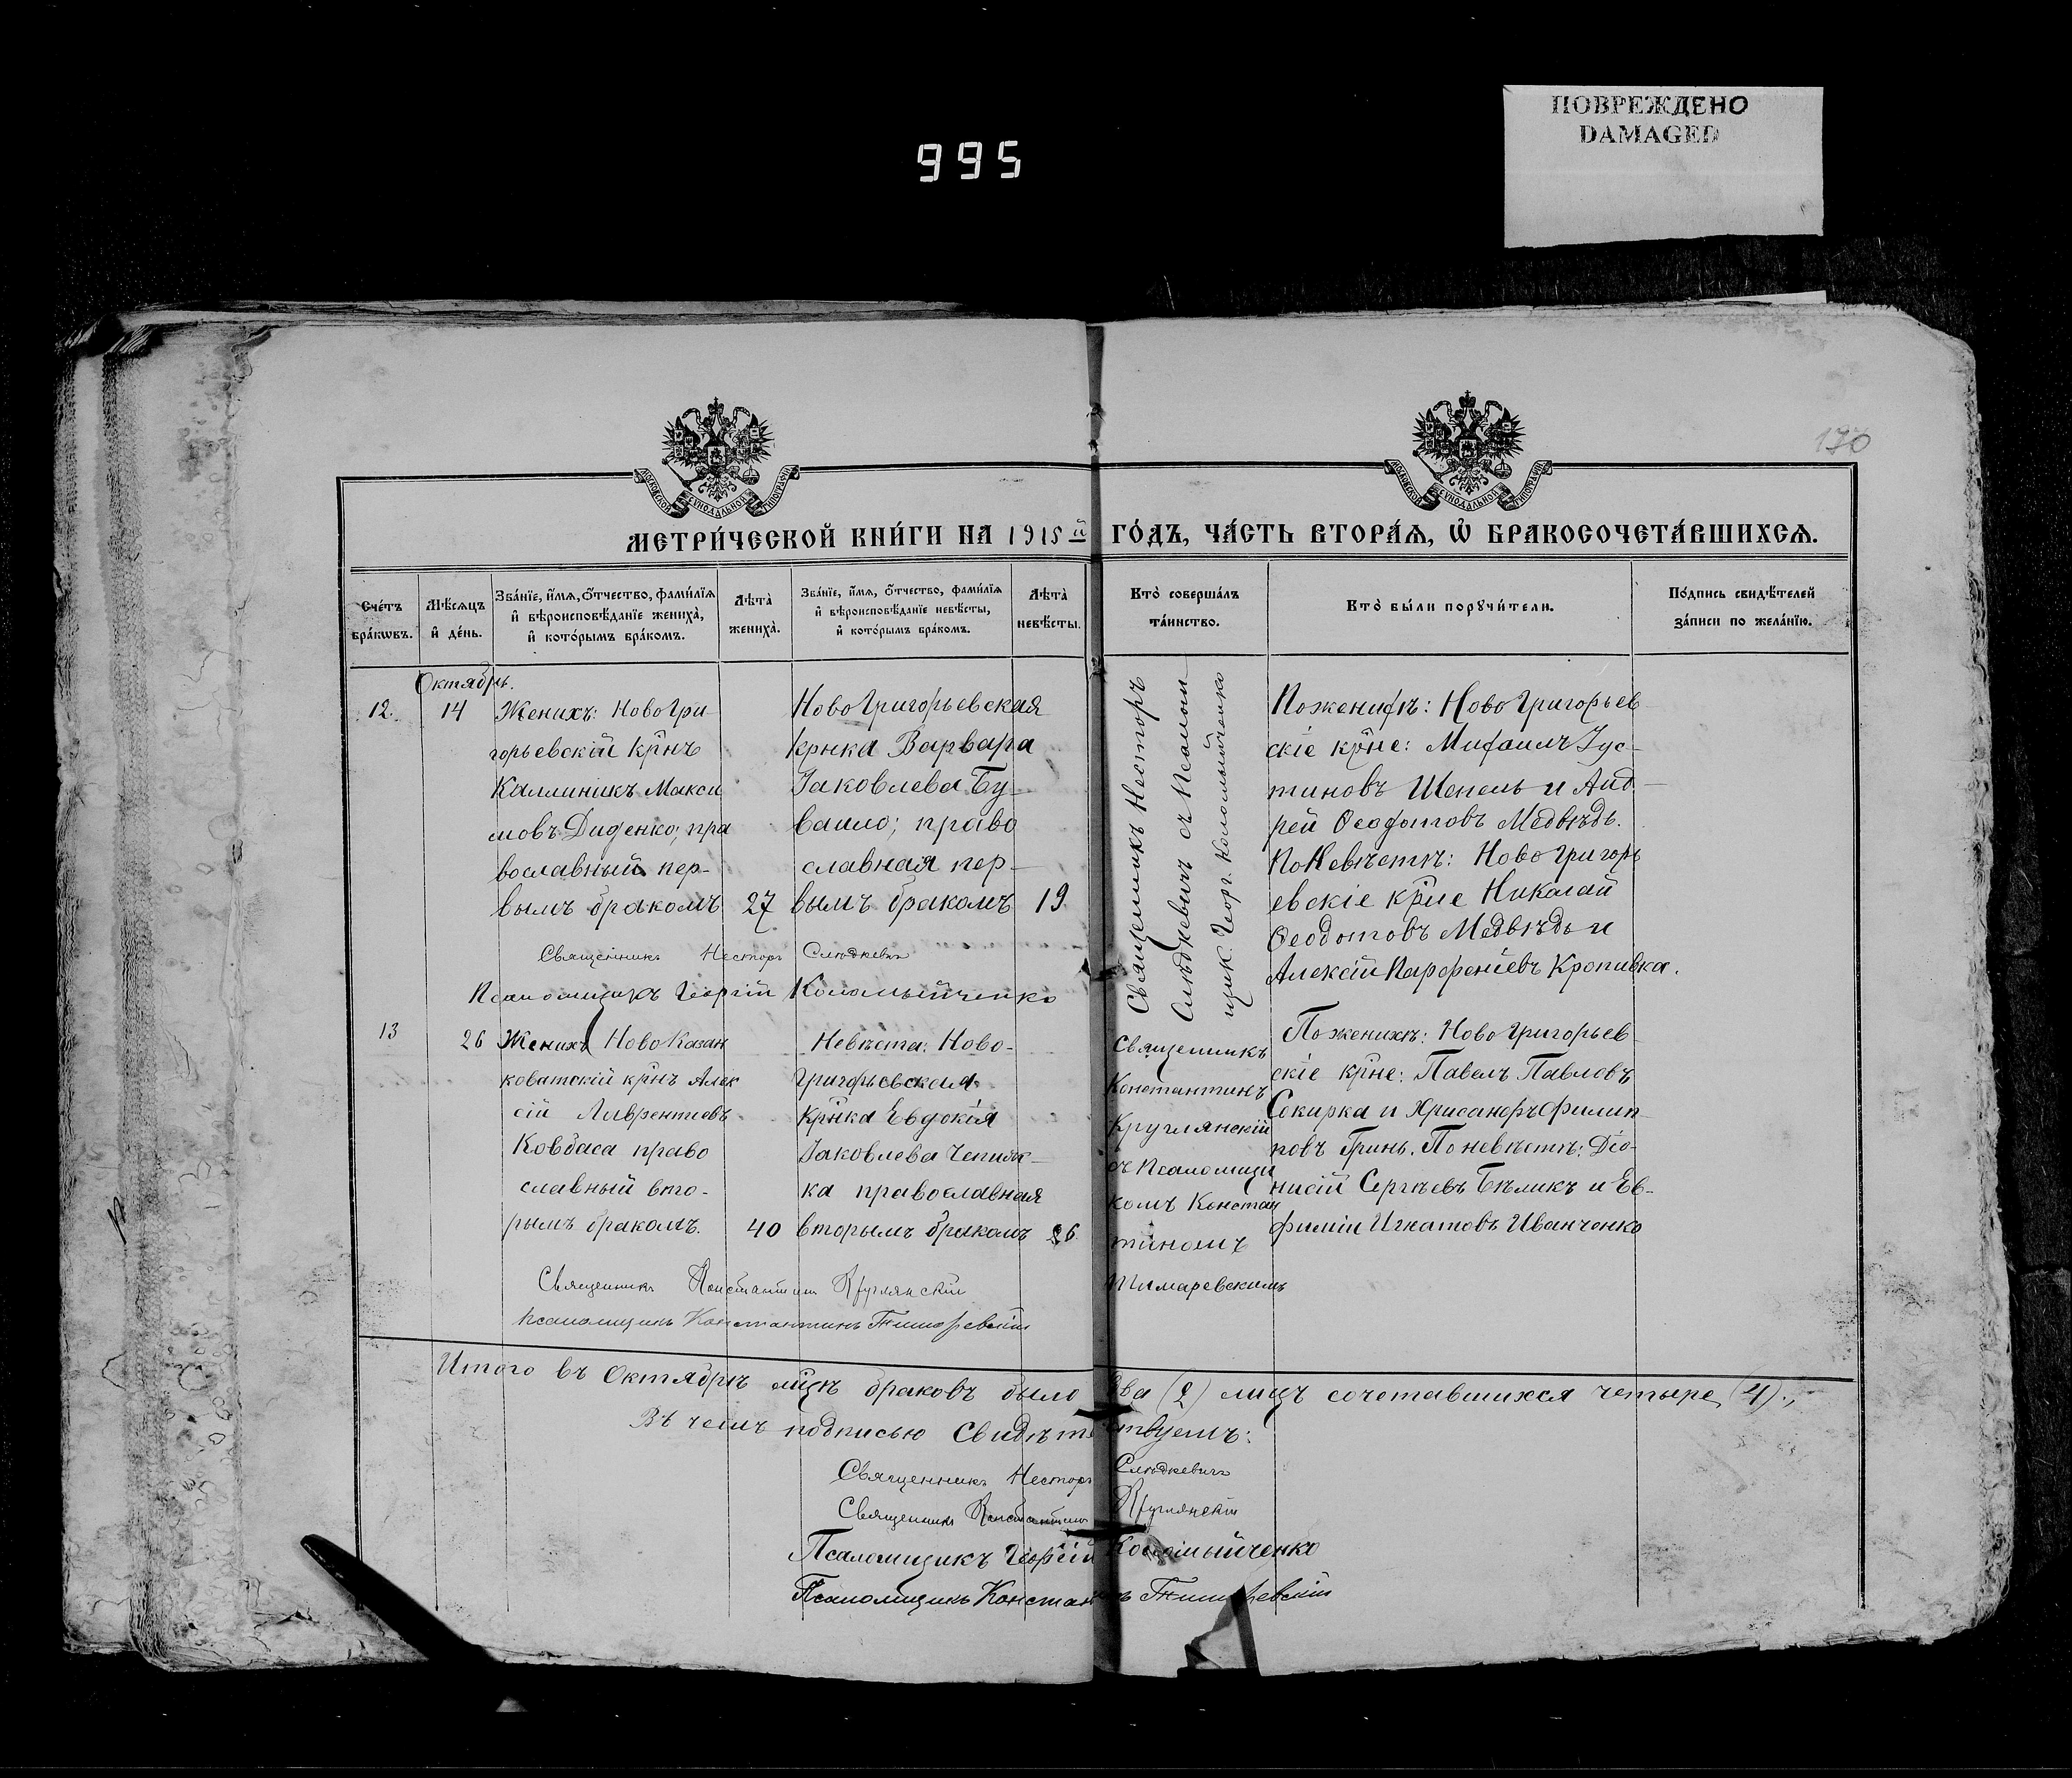 ПОВРЕЖДЕНО
DAMAGED
995
170
МОСКОВСКОЙ СѴНОДАЛЬНОЙ ТИПОГРАФІИ
МОСКОВСКОЙ СѴНОДАЛЬНОЙ ТИПОГРАФІИ
МЕТРИ́ЧЕСКОЙ КНИ́ГИ НА 1915 й ГО́ДЪ, ЧА́СТЬ ВТОРА́Ѧ, Ѽ БРАКОСОЧЕТА́ВШИХСѦ.
Сче́тъ бра́кѡвъ.
Мѣ́сѧцъ и҆ де́нь.
Зва́нїе, и҆́мѧ, ѻ҆́тчество, фами́лїѧ и҆ вѣроисповѣ́данїе жениха̀, и҆ кото́рымъ бра́комъ.
Лѣ́та̀ жениха̀.
Зва́нїе, и҆́мѧ, ѻ҆́тчество, фами́лїѧ и҆ вѣроисповѣ́данїе невѣ́сты, и҆ кото́рымъ бра́комъ.
Лѣ́та̀ невѣ́сты.
Кто̀ соверша́лъ та́инство.
Кто̀ бы́ли порꙋчи́тели.
По́дпись свидѣ́телей за́писи по жела́нїю.
Октябрь.
12. 14
Женихъ: Новогри
горьевскій крнъ
Каллиникъ Макси
мовъ Диденко; пра
вославный пер-
вымъ бракомъ 27
Новогригорьевская
крнка Варвара
Іаковлева Бу-
ваило; право
славная пер-
вымъ бракомъ 19
Священникъ Несторъ
Слѣдкевичъ съ Псалом
щик. Георг. Коломыйченко
По женихѣ: Новогригорьев
скіе крне: Михаилъ Іус-
тиновъ Шепель и Анд-
рей Ѳеодотовъ Медвѣдь.
По Невѣстѣ: Новогригорь
евскіе крне Николай
Ѳеодотовъ Медвѣдь и
Алексій Парфеніевъ Кропивка.
Священникъ Несторъ Слѣдкевичъ
Псаломщикъ Георгій Коломыйченко
13 26
Женихъ Новоказан
коватскій крнъ Алек
сій Лаврентіевъ
Ковбаса право
славный вто-
рымъ бракомъ. 40
Невѣста: Ново-
григорьевская
крнка Евдокія
Іаковлева
ка православная
вторымъ бракомъ 26
Священникъ
Константинъ
Круглянскій
съ Псаломщи
комъ Констан
тиномъ
По женихѣ: Новогригорьев
скіе крне: Павелъ Павловъ
Сокирка и Хрисанфъ Филип
повъ Гринь. По невѣстѣ: Діо-
нисій Сергѣевъ Бѣликъ и Ев-
фимій Игнатовъ Иванченко
Священникъ Константинъ Круглянскій
Псаломщикъ Константинъ
Итого въ Октябрѣ мцѣ браковъ было два (2) лицъ сочетавшихся четыре (4).,
Въ чемъ подписью Свидѣтельствуемъ:
Священникъ Несторъ Слѣдкевичъ
Священникъ Константинъ Круглянскій
Псаломщикъ Георгій Коломыйченко
Псаломщикъ